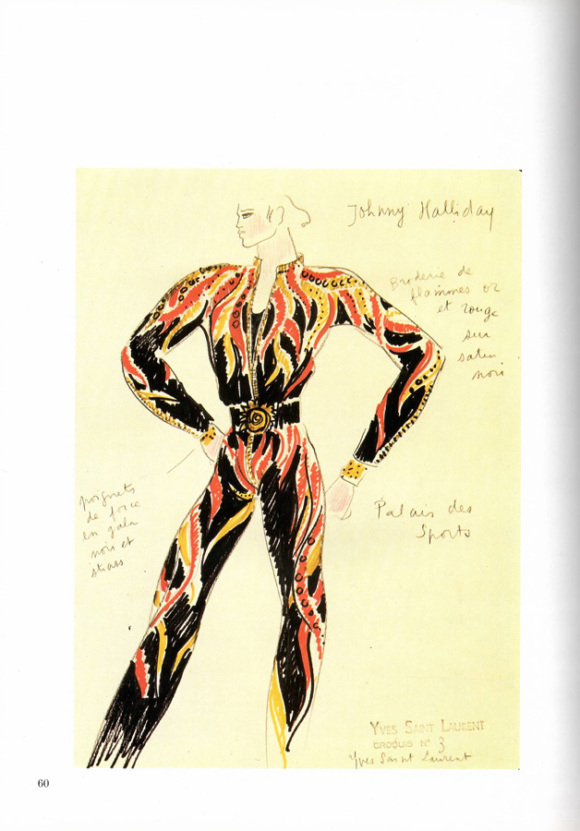 Johnny Halliday
Broderie de
flammes or
et rouge
sur
satin
noir
poignets
de force
en galon
noir et
strass
Palais des
Sports
YVES SAINT LAURENT
CROQUIS N° 3
Yves Saint Laurent
60